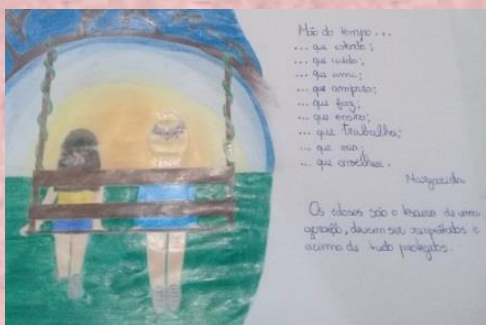 Mão do tempo...
... que estende;
... que cuida;
... que ama;
... que ampara;
... que faz;
... que ensina;
... que trabalha;
... que
... que aconselha.
Margarida
Os idosos são o tesouro de uma
geração, devem ser respeitados e
acima de tudo protegidos.